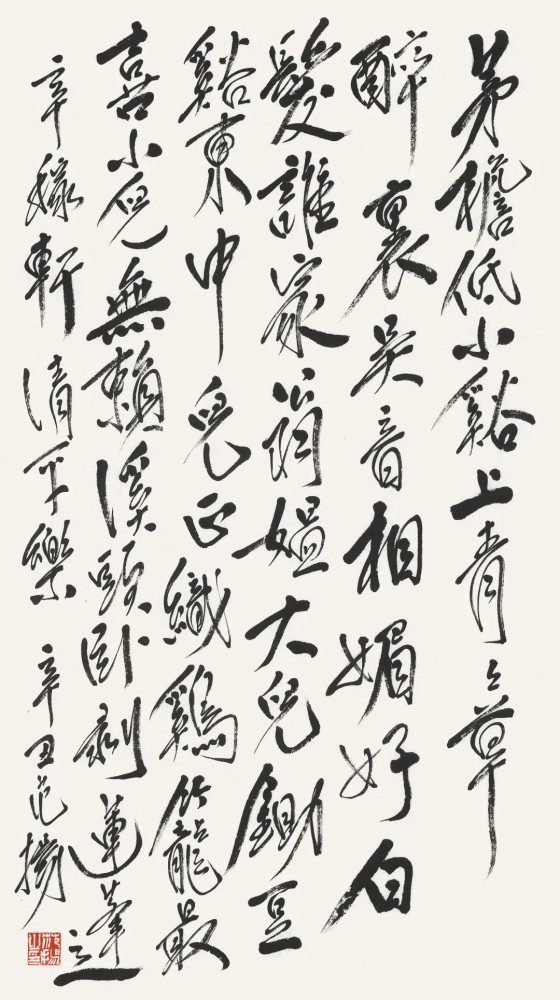 茅檐低小谿上青々草
醉裏吴音相媚好白
髮誰家翁媪大兒鋤豆
谿東中兒正織鷄籠最
喜小兒無賴溪頭卧剥蓮蓬
辛稼軒清平樂 辛丑范揚
范揚之印